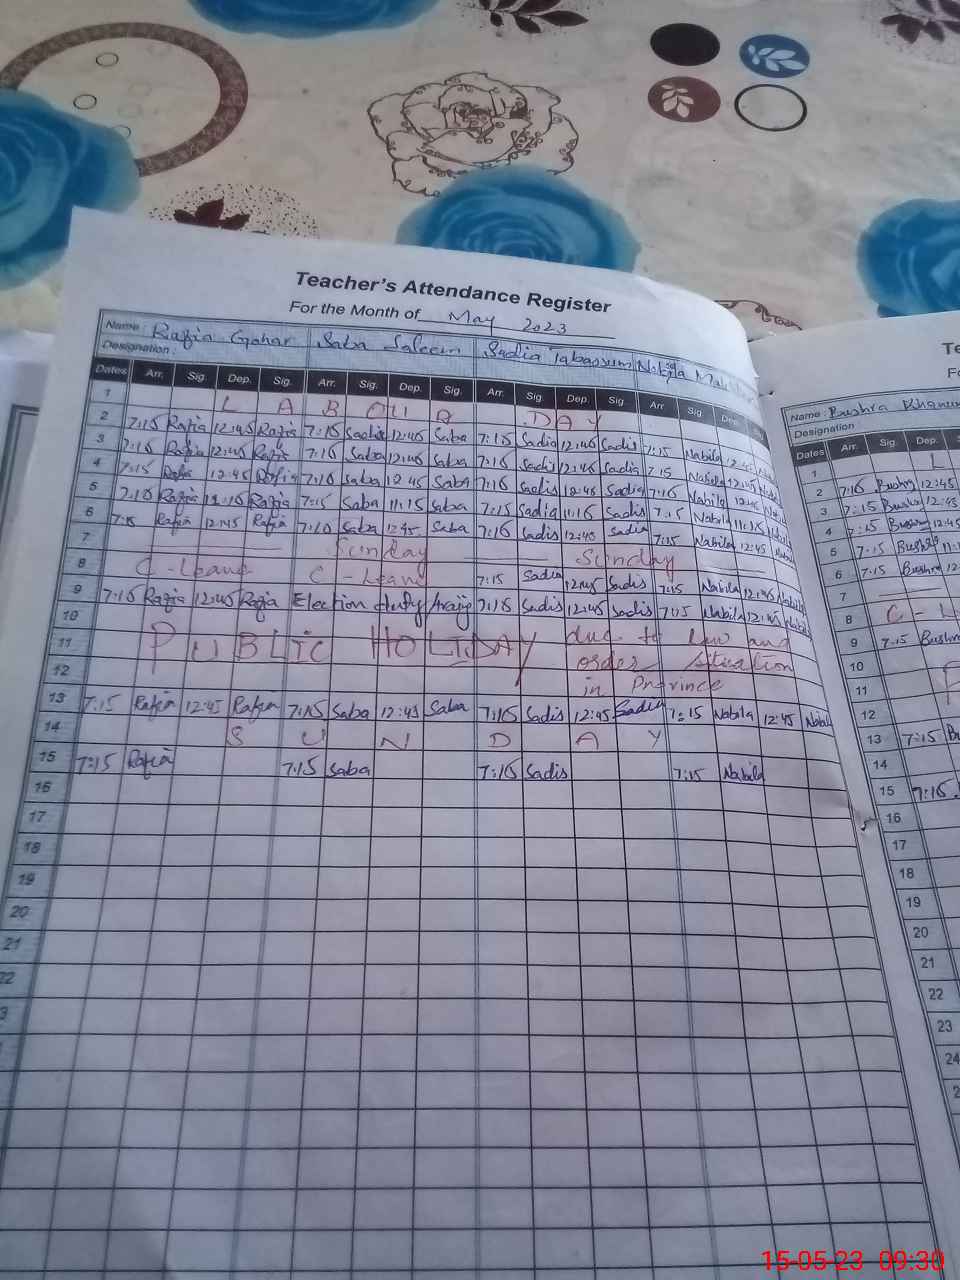 Teacher's Attendance Register
For the Month of May 2023
Name: Rafia Gohar Saba Saleem Sadia Tabassum Nabila
Designation:
Dates Arr. Sig. Dep. Sig. Arr. Sig. Dep. Sig. Arr. Sig. Dep. Sig. Arr. Sig. Dep.
1 LABOUR DAY
2 7:15 Rafia 12:45 Rafia 7:15 12:45 Saba 7:15 Sadia 12:45 Sadis 7:15 Nabila 12:45
3 7:15 Rafia 12:45 Rafia 7:15 Saba 12:45 Saba 7:15 Sadis 12:45 Sadia 7:15 Nabila 12:45
4 7:15 Rafia 12:45 Rafia 7:10 Saba 12:45 Saba 7:15 Sadis 12:45 Sadia 7:15 Nabila 12:45
5 7:10 Rafia 11:15 Rafia 7:15 Saba 11:15 Saba 7:15 Sadia 11:15 Sadis 7:15 Nabila 11:15
6 7:15 Rafia 12:45 Rafia 7:10 Saba 12:45 Saba 7:15 Sadis 12:45 Sadia 7:15 Nabila 12:45
7 Sunday Sunday
8 C-Leave C-Leave 7:15 Sadia 12:45 Sadis 7:15 Nabila 12:45 Nabila
9 7:10 Rafia 12:45 Rafia Election duty 7:15 Sadis 12:45 Sadis 7:15 Nabila 12:45 Nabila
10
11 PUBLIC HOLIDAY due to law and
12 order situation
in Province
13 7:15 Rafia 12:45 Rafia 7:15 Saba 12:45 Saba 7:15 Sadis 12:45 Sadia 7:15 Nabila 12:45 Nabila
14 SUNDAY
15 7:15 Rafia 7:15 Saba 7:15 Sadis 7:15 Nabila
16
17
18
19
20
21
22
3
Te
F
Name: Bushra
Designation:
Dates Arr. Sig. Dep.
1 L
2 7:15 12:45
3 7:15 Bushra 12:45
4 7:15 Bushra 12:45
5 7:15 Bushra 11:1
6 7:15 Bushra 12:4
7
8 C-L
9 7:15 Bushra
10
11 P
12
13 7:15 B
14
15 7:15
16
17
18
19
20
21
22
23
24
2
15-05-23 09:30